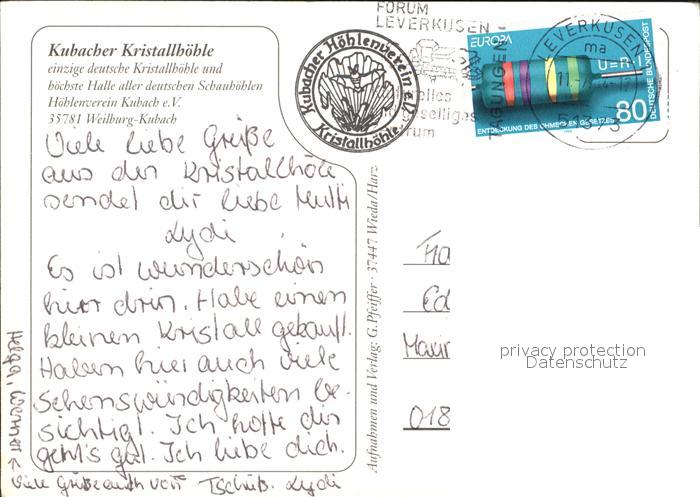 Kubacher Kristallhöhle
einzige deutsche Kristallhöhle und
höchste Halle aller deutschen Schauhöhlen
Höhlenverein Kubach e.V.
35781 Weilburg-Kubach
Viele liebe Grüße
aus der Kristallhöle
sendet dir liebe Mutti
Lydi
Es ist wunderschön
hier drin. Habe einen
kleinen Kristall gekauft.
Haben hier auch viele
Sehenswürdigkeiten be-
sichtigt. Ich hoffe dir
geht's gut. Ich liebe dich.
Viele Grüße auch von Tschüß. Lydi
Helga, Werner
Aufnahmen und Verlag: G. Pfeiffer · 37447 Wieda/Harz
Kubacher Höhlenverein e.V.
Kristallhöhle
FORUM
LEVERKUSEN -
TAGUNGEN
LEVERKUSEN
ma
EUROPA
U=R·I
80
DEUTSCHE BUNDESPOST
ENTDECKUNG DES OHMSCHEN GESETZES
Ed
018
privacy protection
Datenschutz